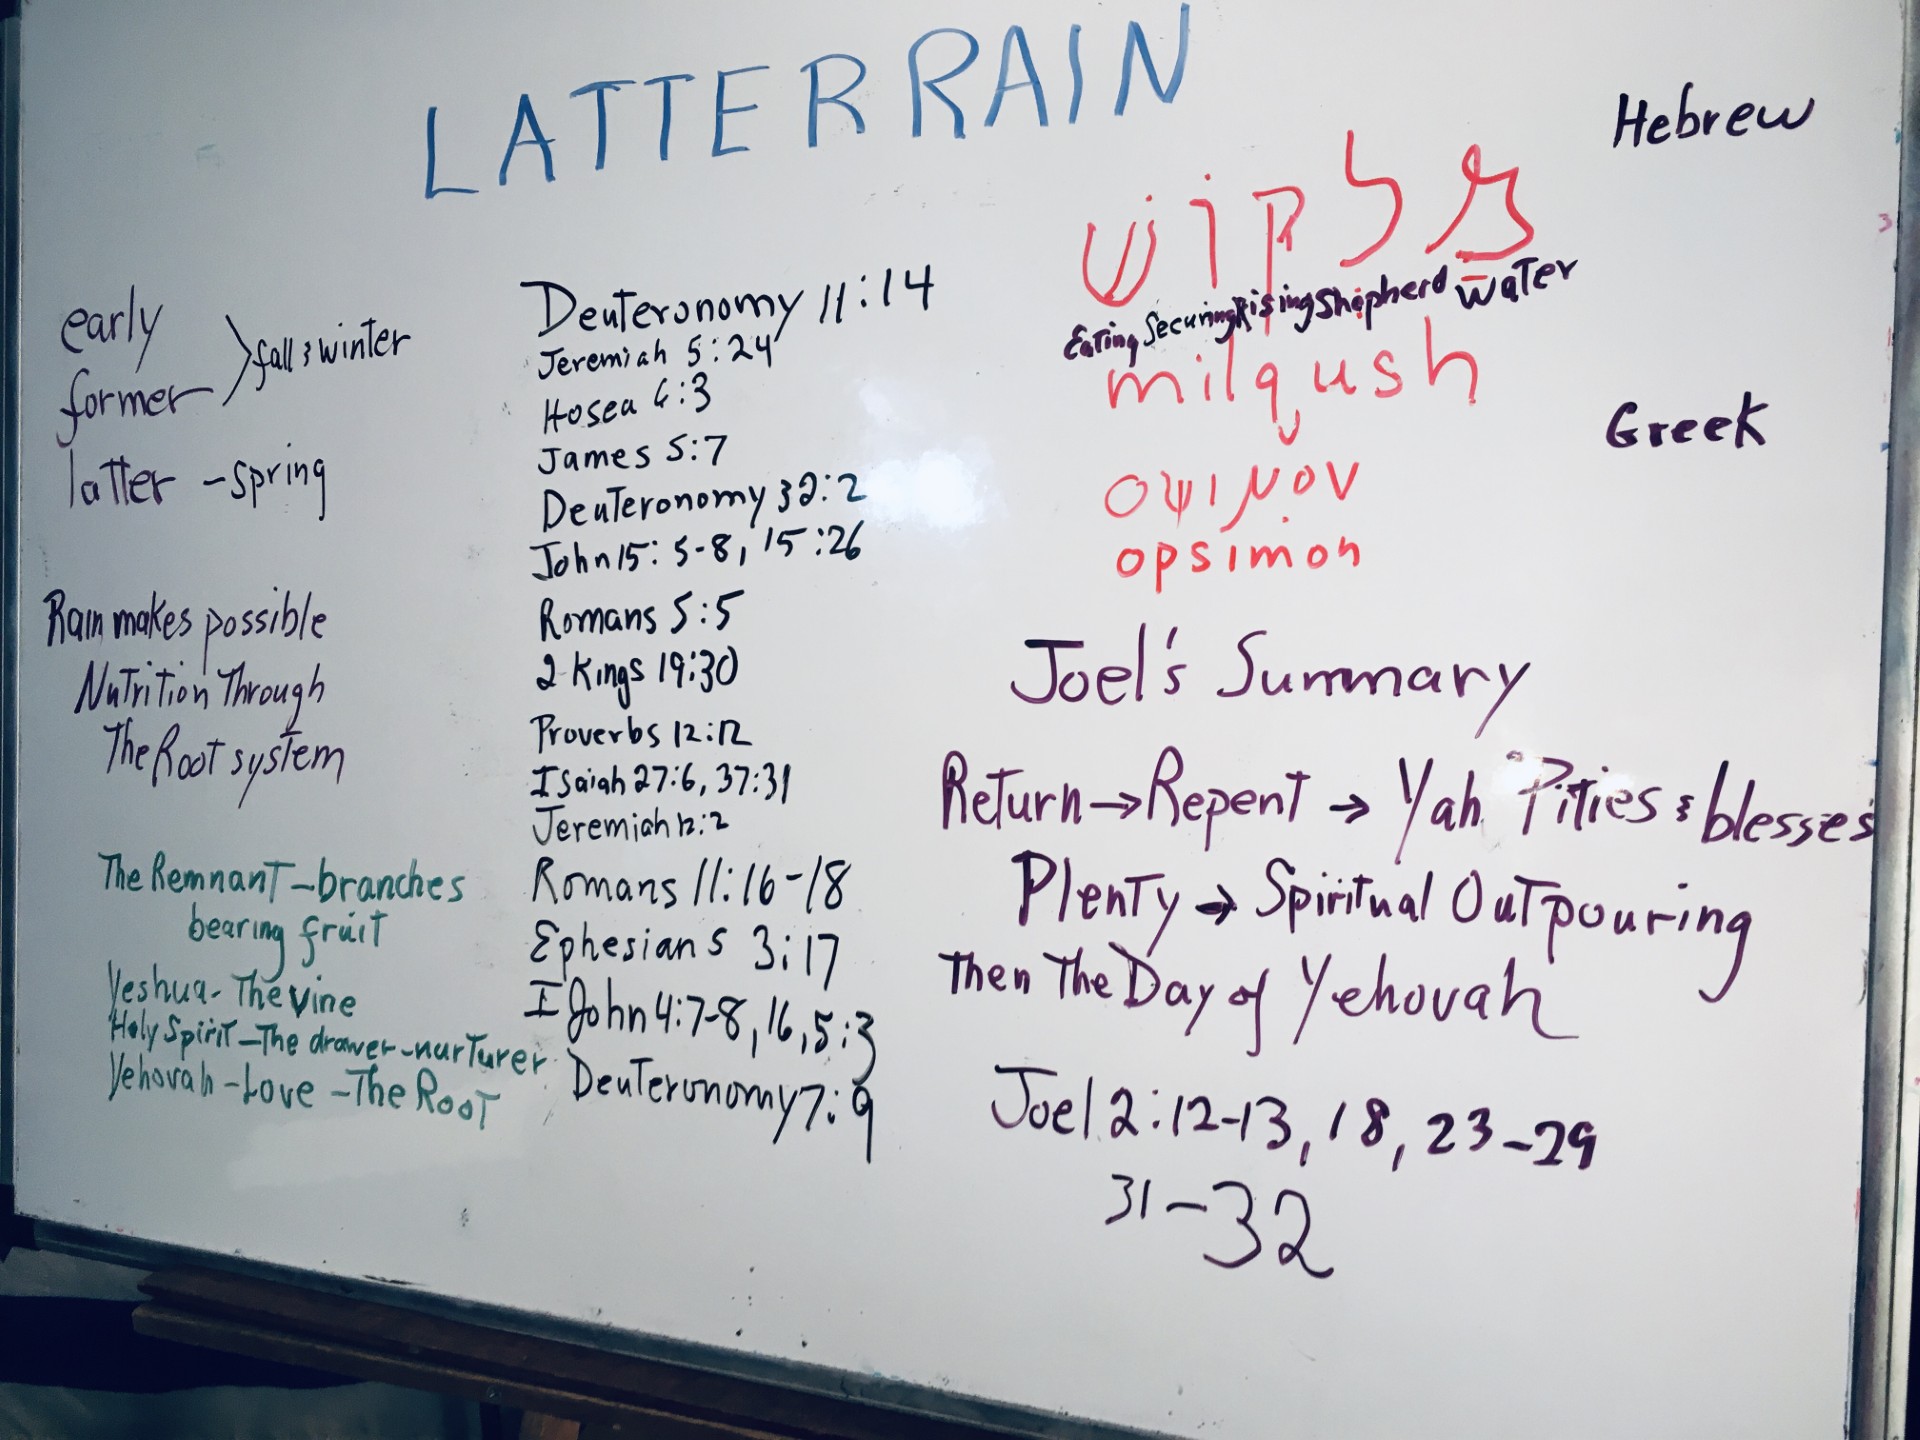 LATTER RAIN
early
former > fall & winter
latter - spring
Rain makes possible
Nutrition Through
The Root system
The Remnant - branches
bearing fruit
Yeshua - The vine
Holy Spirit - The drawer - nurturer
Yehovah - Love - The Root
Deuteronomy 11:14
Jeremiah 5:24
Hosea 6:3
James 5:7
Deuteronomy 32:2
John 15:5-8, 15:26
Romans 5:5
2 Kings 19:30
Proverbs 12:12
Isaiah 27:6, 37:31
Jeremiah 12:2
Romans 11:16-18
Ephesians 3:17
I John 4:7-8, 16, 5:3
Deuteronomy 7:9
Hebrew
מלקוש
Eating Securing Rising Shepherd Water
milqush
Greek
οψιμον
opsimon
Joel's Summary
Return → Repent → Yah Pities & blesses
Plenty → Spiritual Outpouring
Then The Day of Yehovah
Joel 2:12-13, 18, 23-29
31-32